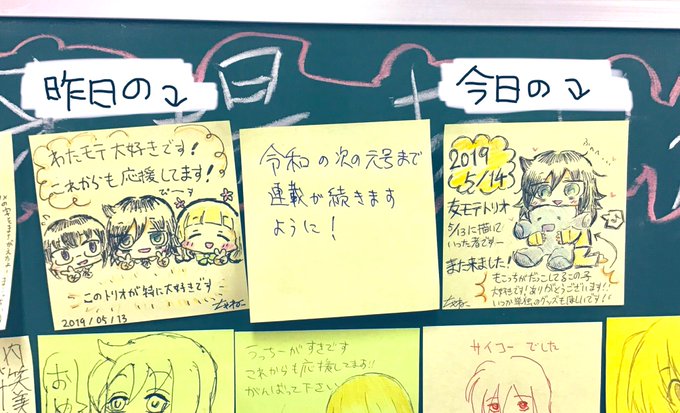 昨日の
今日の
わたモテ大好きです!
これからも応援してます!
このトリオが特に大好きです
2019/05/13
令和の次の元号まで
連載が続きます
ように!
2019
5/14
女モテトリオ
5/13に描いて
いった者ですー
また来ました!
もこっちがだっこしてるこの子
大好きです!ありがとうございます!!
いつか単独のグッズも欲しいです!!
うっちーがすきです
これからも応援してます!!
がんばって下さい
サイコーでした